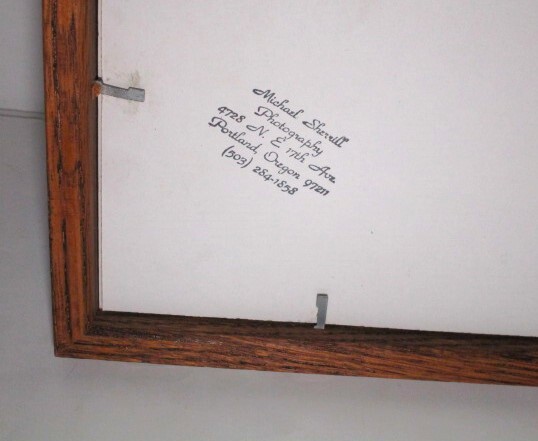 Michael Sherrill
Photography
4728 N. E 17th Ave
Portland, Oregon 97211
(503) 284-1858